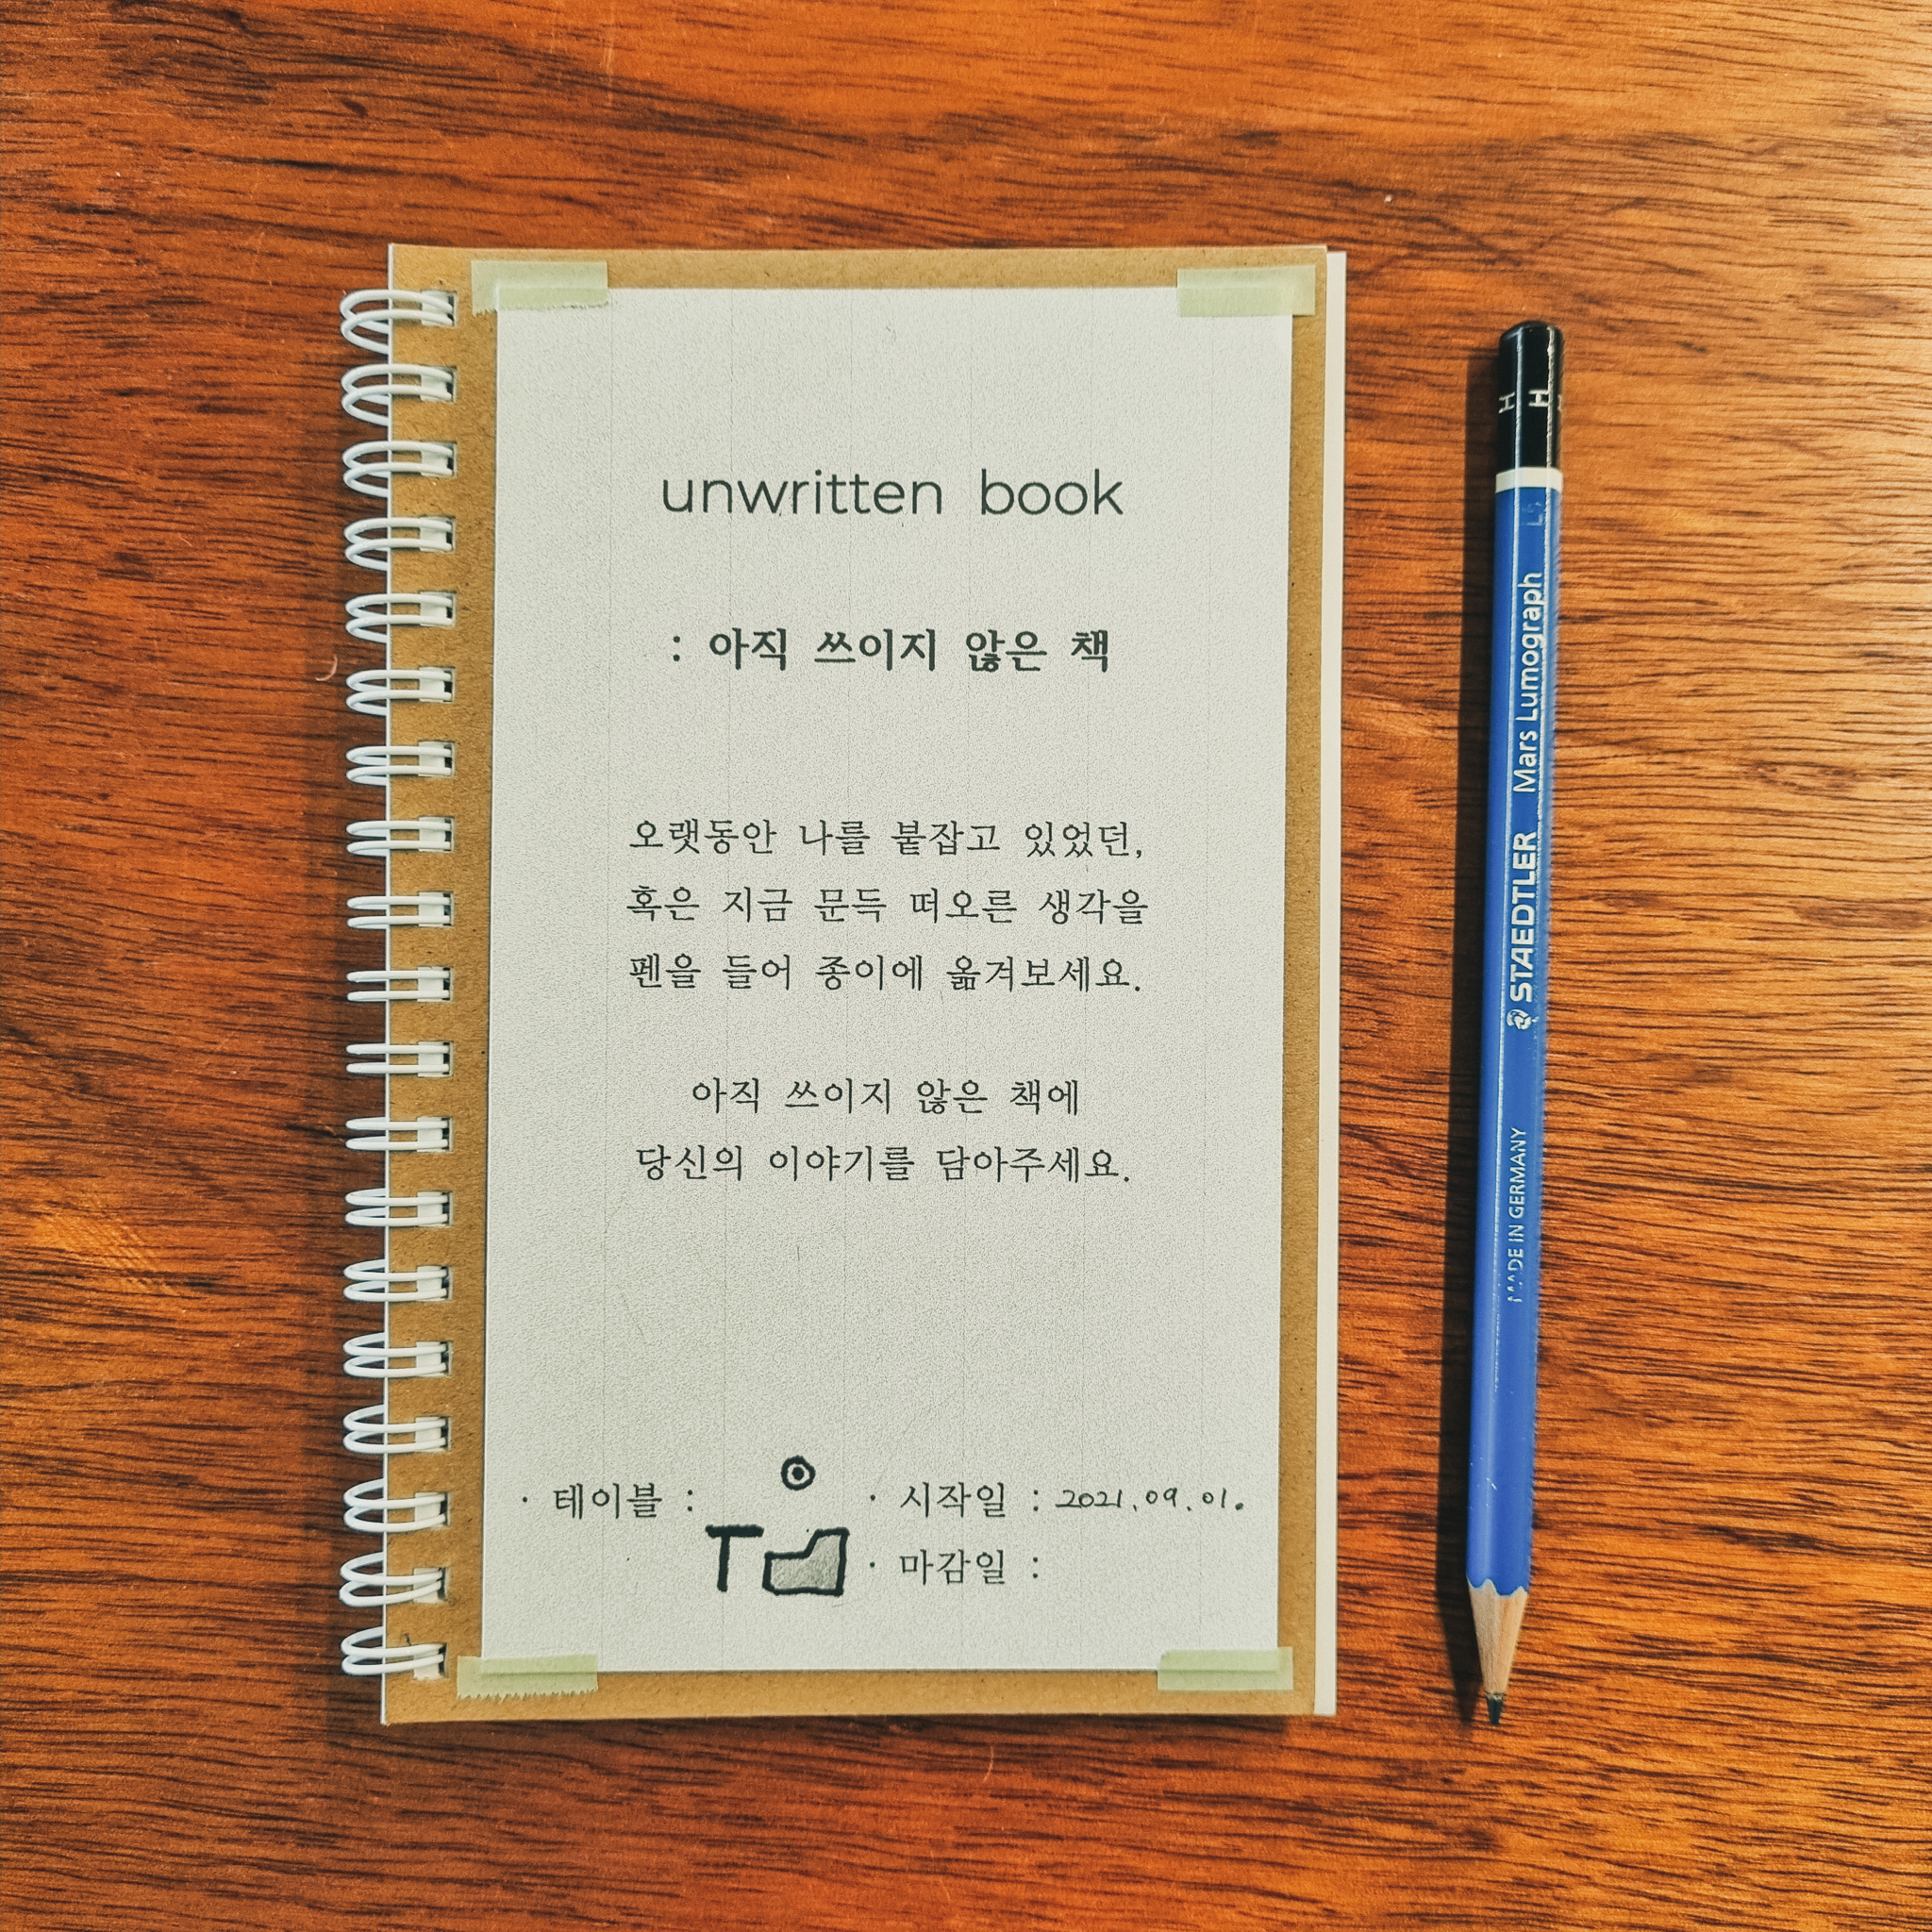 unwritten book
: 아직 쓰이지 않은 책
오랫동안 나를 붙잡고 있었던,
혹은 지금 문득 떠오른 생각을
펜을 들어 종이에 옮겨보세요.
아직 쓰이지 않은 책에
당신의 이야기를 담아주세요.
· 테이블 :
· 시작일 : 2021.09.01.
· 마감일 :
H H
MADE IN GERMANY STAEDTLER Mars Lumograph